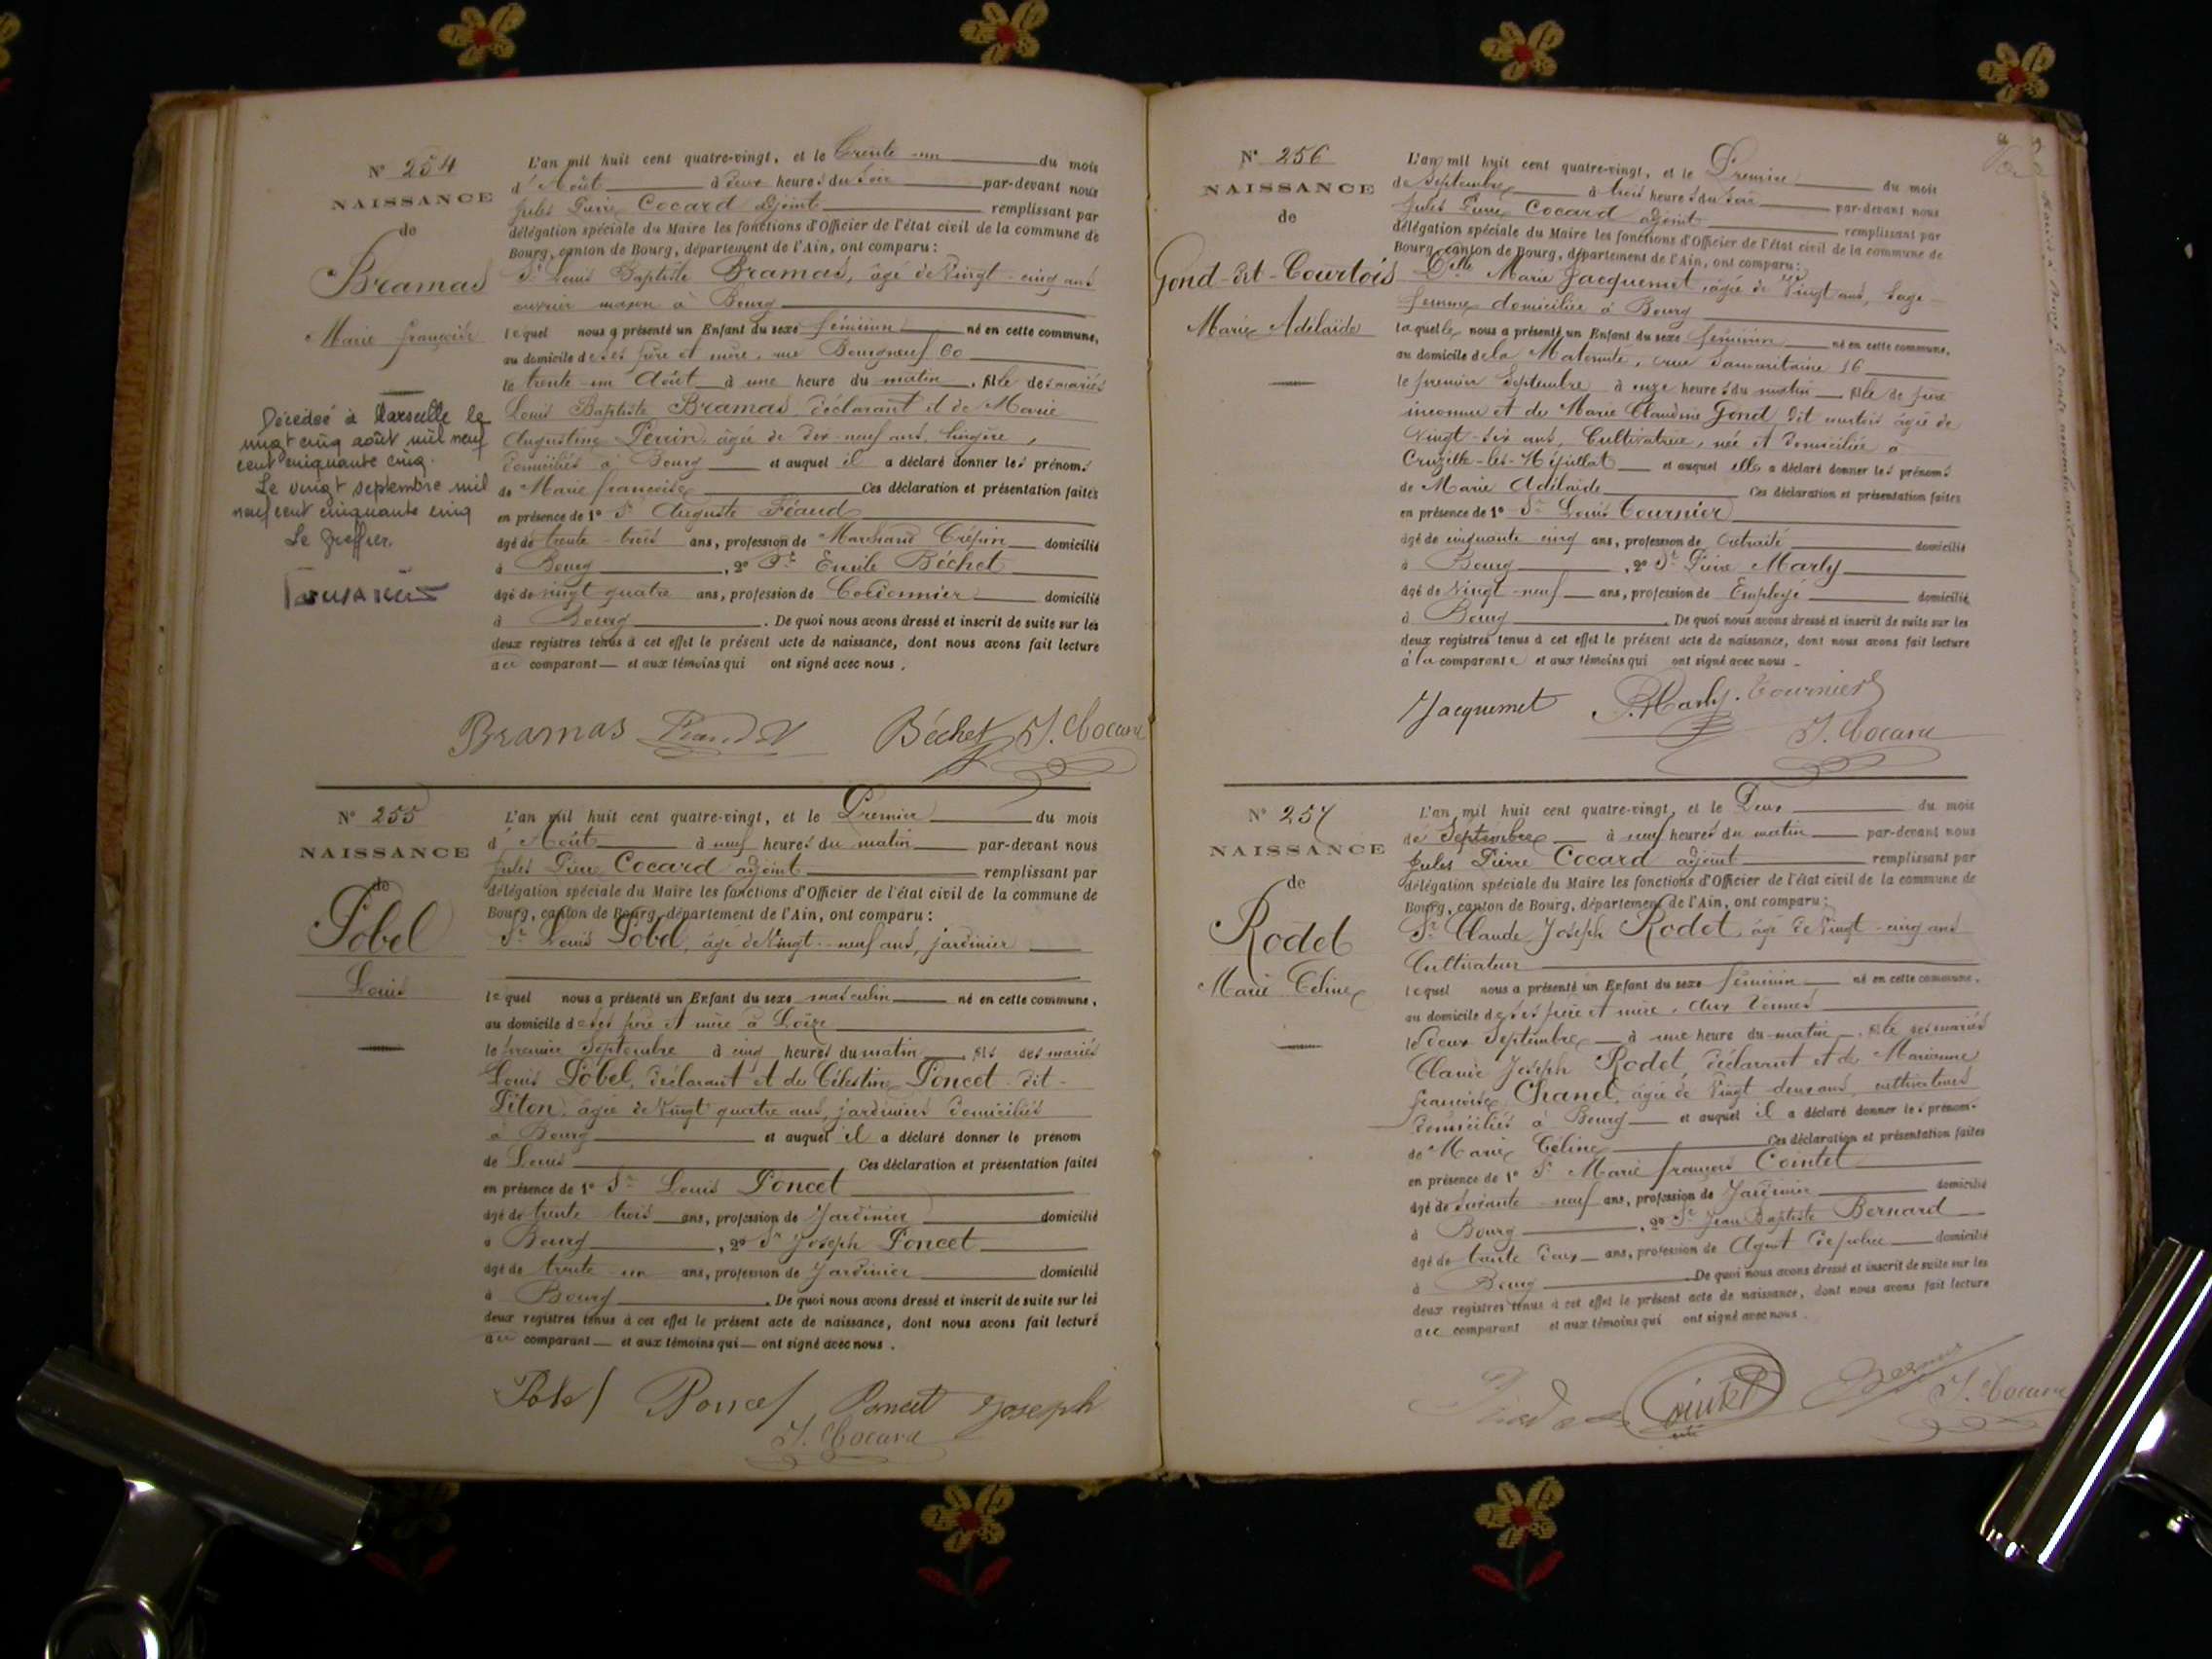 N° 254
NAISSANCE
de
Bramas
Marie françoise
Décédée à Marseille le
vingt cinq août mil neuf
cent cinquante cinq.
Le vingt septembre mil
neuf cent cinquante cinq
Le Greffier.
L'an mil huit cent quatre-vingt, et le Trente-un du mois
d'Août à deux heures du soir par-devant nous
Jules Pierre Cocard adjoint remplissant par
délégation spéciale du Maire les fonctions d'Officier de l'état civil de la commune de
Bourg, canton de Bourg, département de l'Ain, ont comparu :
Sr Louis Baptiste Bramas, âgé de Vingt-cinq ans
ouvrier maçon à Bourg
lequel nous a présenté un Enfant du sexe féminin né en cette commune,
au domicile de ses père et mère, rue Bourgneuf 60
le trente-un Août à une heure du matin, fille des mariés
Louis Baptiste Bramas, déclarant et de Marie
Augustine Perrin, âgée de dix-neuf ans, lingère,
domiciliés à Bourg et auquel il a déclaré donner les prénoms
de Marie françoise Ces déclaration et présentation faites
en présence de 1° Sr Auguste Féaud
âgé de trente-trois ans, profession de Marchand Crépin domicilié
à Bourg, 2° Sr Emile Béchet
âgé de vingt quatre ans, profession de Cordonnier domicilié
à Bourg. De quoi nous avons dressé et inscrit de suite sur les
deux registres tenus à cet effet le présent acte de naissance, dont nous avons fait lecture
au comparant et aux témoins qui ont signé avec nous.
Bramas Féaud Béchet J. Cocard
N° 255
NAISSANCE
de
Pobel
Louis
L'an mil huit cent quatre-vingt, et le Premier du mois
d'Août à neuf heures du matin par-devant nous
Jules Pierre Cocard adjoint remplissant par
délégation spéciale du Maire les fonctions d'Officier de l'état civil de la commune de
Bourg, canton de Bourg, département de l'Ain, ont comparu :
Sr Louis Pobel, âgé de Vingt-neuf ans, jardinier
lequel nous a présenté un Enfant du sexe masculin né en cette commune,
au domicile de ses père et mère à Loëze
le premier Septembre à cinq heures du matin, fils des mariés
Louis Pobel, déclarant et de Célestine Poncet-dit-
Piton, âgée de Vingt quatre ans, jardiniers domiciliés
à Bourg et auquel il a déclaré donner le prénom
de Louis Ces déclaration et présentation faites
en présence de 1° Sr Louis Poncet
âgé de trente-trois ans, profession de Jardinier domicilié
à Bourg, 2° Sr Joseph Poncet
âgé de trente-un ans, profession de Jardinier domicilié
à Bourg. De quoi nous avons dressé et inscrit de suite sur les
deux registres tenus à cet effet le présent acte de naissance, dont nous avons fait lecture
au comparant et aux témoins qui ont signé avec nous.
Pobel Poncet Poncet Joseph
J. Cocard
N° 256
NAISSANCE
de
Gond-dit-Courtois
Marie Adélaïde
L'an mil huit cent quatre-vingt, et le Premier du mois
de Septembre à trois heures du soir par-devant nous
Jules Pierre Cocard adjoint remplissant par
délégation spéciale du Maire les fonctions d'Officier de l'état civil de la commune de
Bourg, canton de Bourg, département de l'Ain, ont comparu :
Delle Marie Jacquemet, âgée de Vingt ans, Sage-
femme domiciliée à Bourg
laquelle nous a présenté un Enfant du sexe féminin né en cette commune,
au domicile de la Maternité, rue Samaritaine 16
le premier Septembre à onze heures du matin fille de père
inconnu et de Marie Claudine Gond, dit courtois âgée de
Vingt-six ans, Cultivatrice, née et domiciliée à
Cruzille-les-Mépillat et auquel elle a déclaré donner les prénoms
de Marie Adélaïde Ces déclaration et présentation faites
en présence de 1° Sr Louis Tournier
âgé de cinquante cinq ans, profession de retraité domicilié
à Bourg, 2° Sr Pierre Marly
âgé de Vingt-neuf ans, profession de Employé domicilié
à Bourg. De quoi nous avons dressé et inscrit de suite sur les
deux registres tenus à cet effet le présent acte de naissance, dont nous avons fait lecture
à la comparante et aux témoins qui ont signé avec nous.
Jacquemet P. Marly. Tournier
J. Cocard
N° 257
NAISSANCE
de
Rodet
Marie Céline
L'an mil huit cent quatre-vingt, et le Deux du mois
de Septembre à neuf heures du matin par-devant nous
Jules Pierre Cocard adjoint remplissant par
délégation spéciale du Maire les fonctions d'Officier de l'état civil de la commune de
Bourg, canton de Bourg, département de l'Ain, ont comparu :
Sr Claude Joseph Rodet, âgé de Vingt-cinq ans
Cultivateur
lequel nous a présenté un Enfant du sexe féminin né en cette commune,
au domicile de ses père et mère, aux Vennes
le deux Septembre à une heure du matin, fille des mariés
Claude Joseph Rodet, déclarant et de Marianne
françoise Chanel, âgée de Vingt-deux ans, cultivateurs
domiciliés à Bourg et auquel il a déclaré donner les prénoms
de Marie Céline Ces déclaration et présentation faites
en présence de 1° Sr Marie françois Cointet
âgé de soixante-neuf ans, profession de Jardinier domicilié
à Bourg, 2° Sr Jean Baptiste Bernard
âgé de trente deux ans, profession de Agent de police domicilié
à Bourg. De quoi nous avons dressé et inscrit de suite sur les
deux registres tenus à cet effet le présent acte de naissance, dont nous avons fait lecture
au comparant et aux témoins qui ont signé avec nous.
Cointet J. Cocard